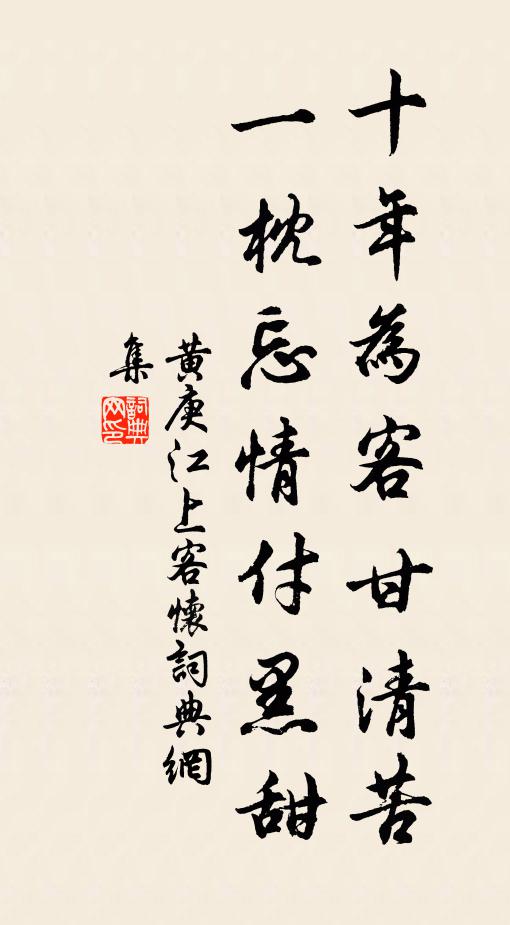 十年為客甘清苦
一枕忘情付黑甜
黄庚江上客懷詞典網
集
詞典網印